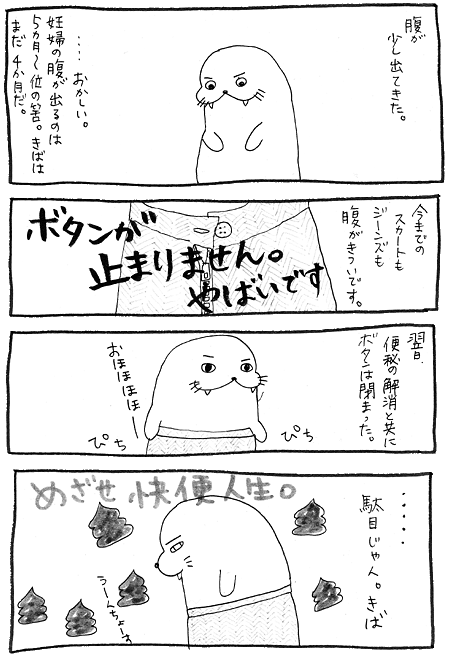 腹が
少し出てきた。
‥‥おかしい。
妊婦の腹が出るのは
5ヵ月〜位の筈。きばは
まだ4か月だ。
今までの
スカートも
ジーンズも
腹がきついです。
ボタンが
止まりません。
やばいです
翌日
便秘の解消と共に
ボタンは閉まった。
おほほほほー
ぴち
ぴち
‥‥‥
駄目じゃん。きば
めざせ 快便人生。
うーんちょーす